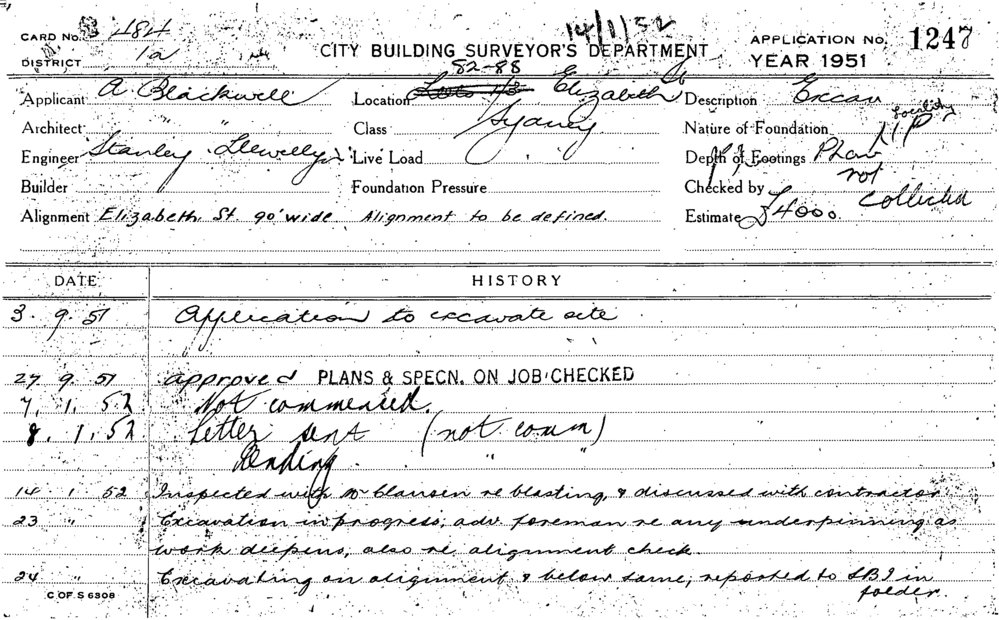 14/1/52
CARD No. 484
CITY BUILDING SURVEYOR'S DEPARTMENT
APPLICATION No. 1247
DISTRICT 12
YEAR 1951
82-88
Applicant A. Blackwell
Location Lots 1/3 Elizabeth St
Description Excav
Architect " "
Class Sydney
Nature of Foundation
Engineer Stanley Llewellyn
Live Load
Depth of Footings Plan
not
Builder
Foundation Pressure
Checked by collected
Alignment Elizabeth St. 90' wide. Alignment to be defined.
Estimate £4000.
DATE
HISTORY
3. 9. 51 Application to excavate site
27 9. 51 approved PLANS & SPECN. ON JOB CHECKED
7. 1. 52 Not commenced.
8. 1. 52 Letter sent (not comm)
Pending " "
14. 1. 52 Inspected with Mr Clausen re blasting, & discussed with contractor
23 " Excavation in progress; adv. foreman re any underpinning as
work deepens; also re alignment check.
24 " Excavating on alignment & below same; reported to SBI in
folder.
C OF S 6308